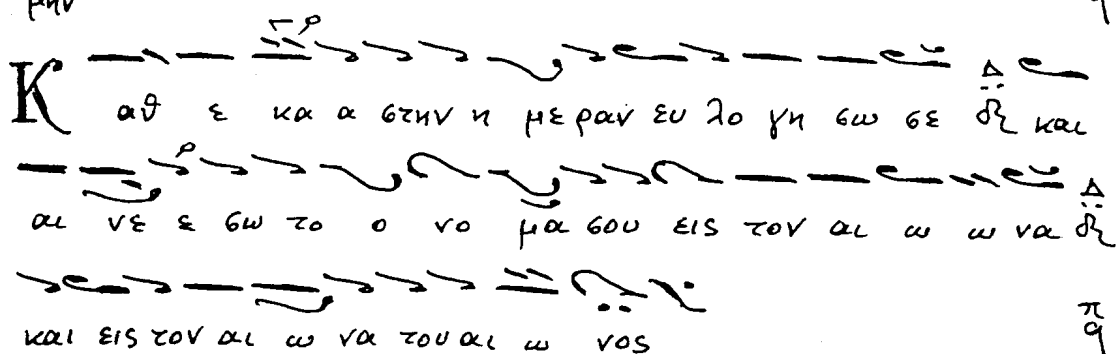 μην
Καθ ε κα α στην η με ραν ευ λο γη σω σε Δ και
αι νε ε σω το ο νο μα σου εις τον αι ω ω να Δ
και εις τον αι ω να του αι ω νος π